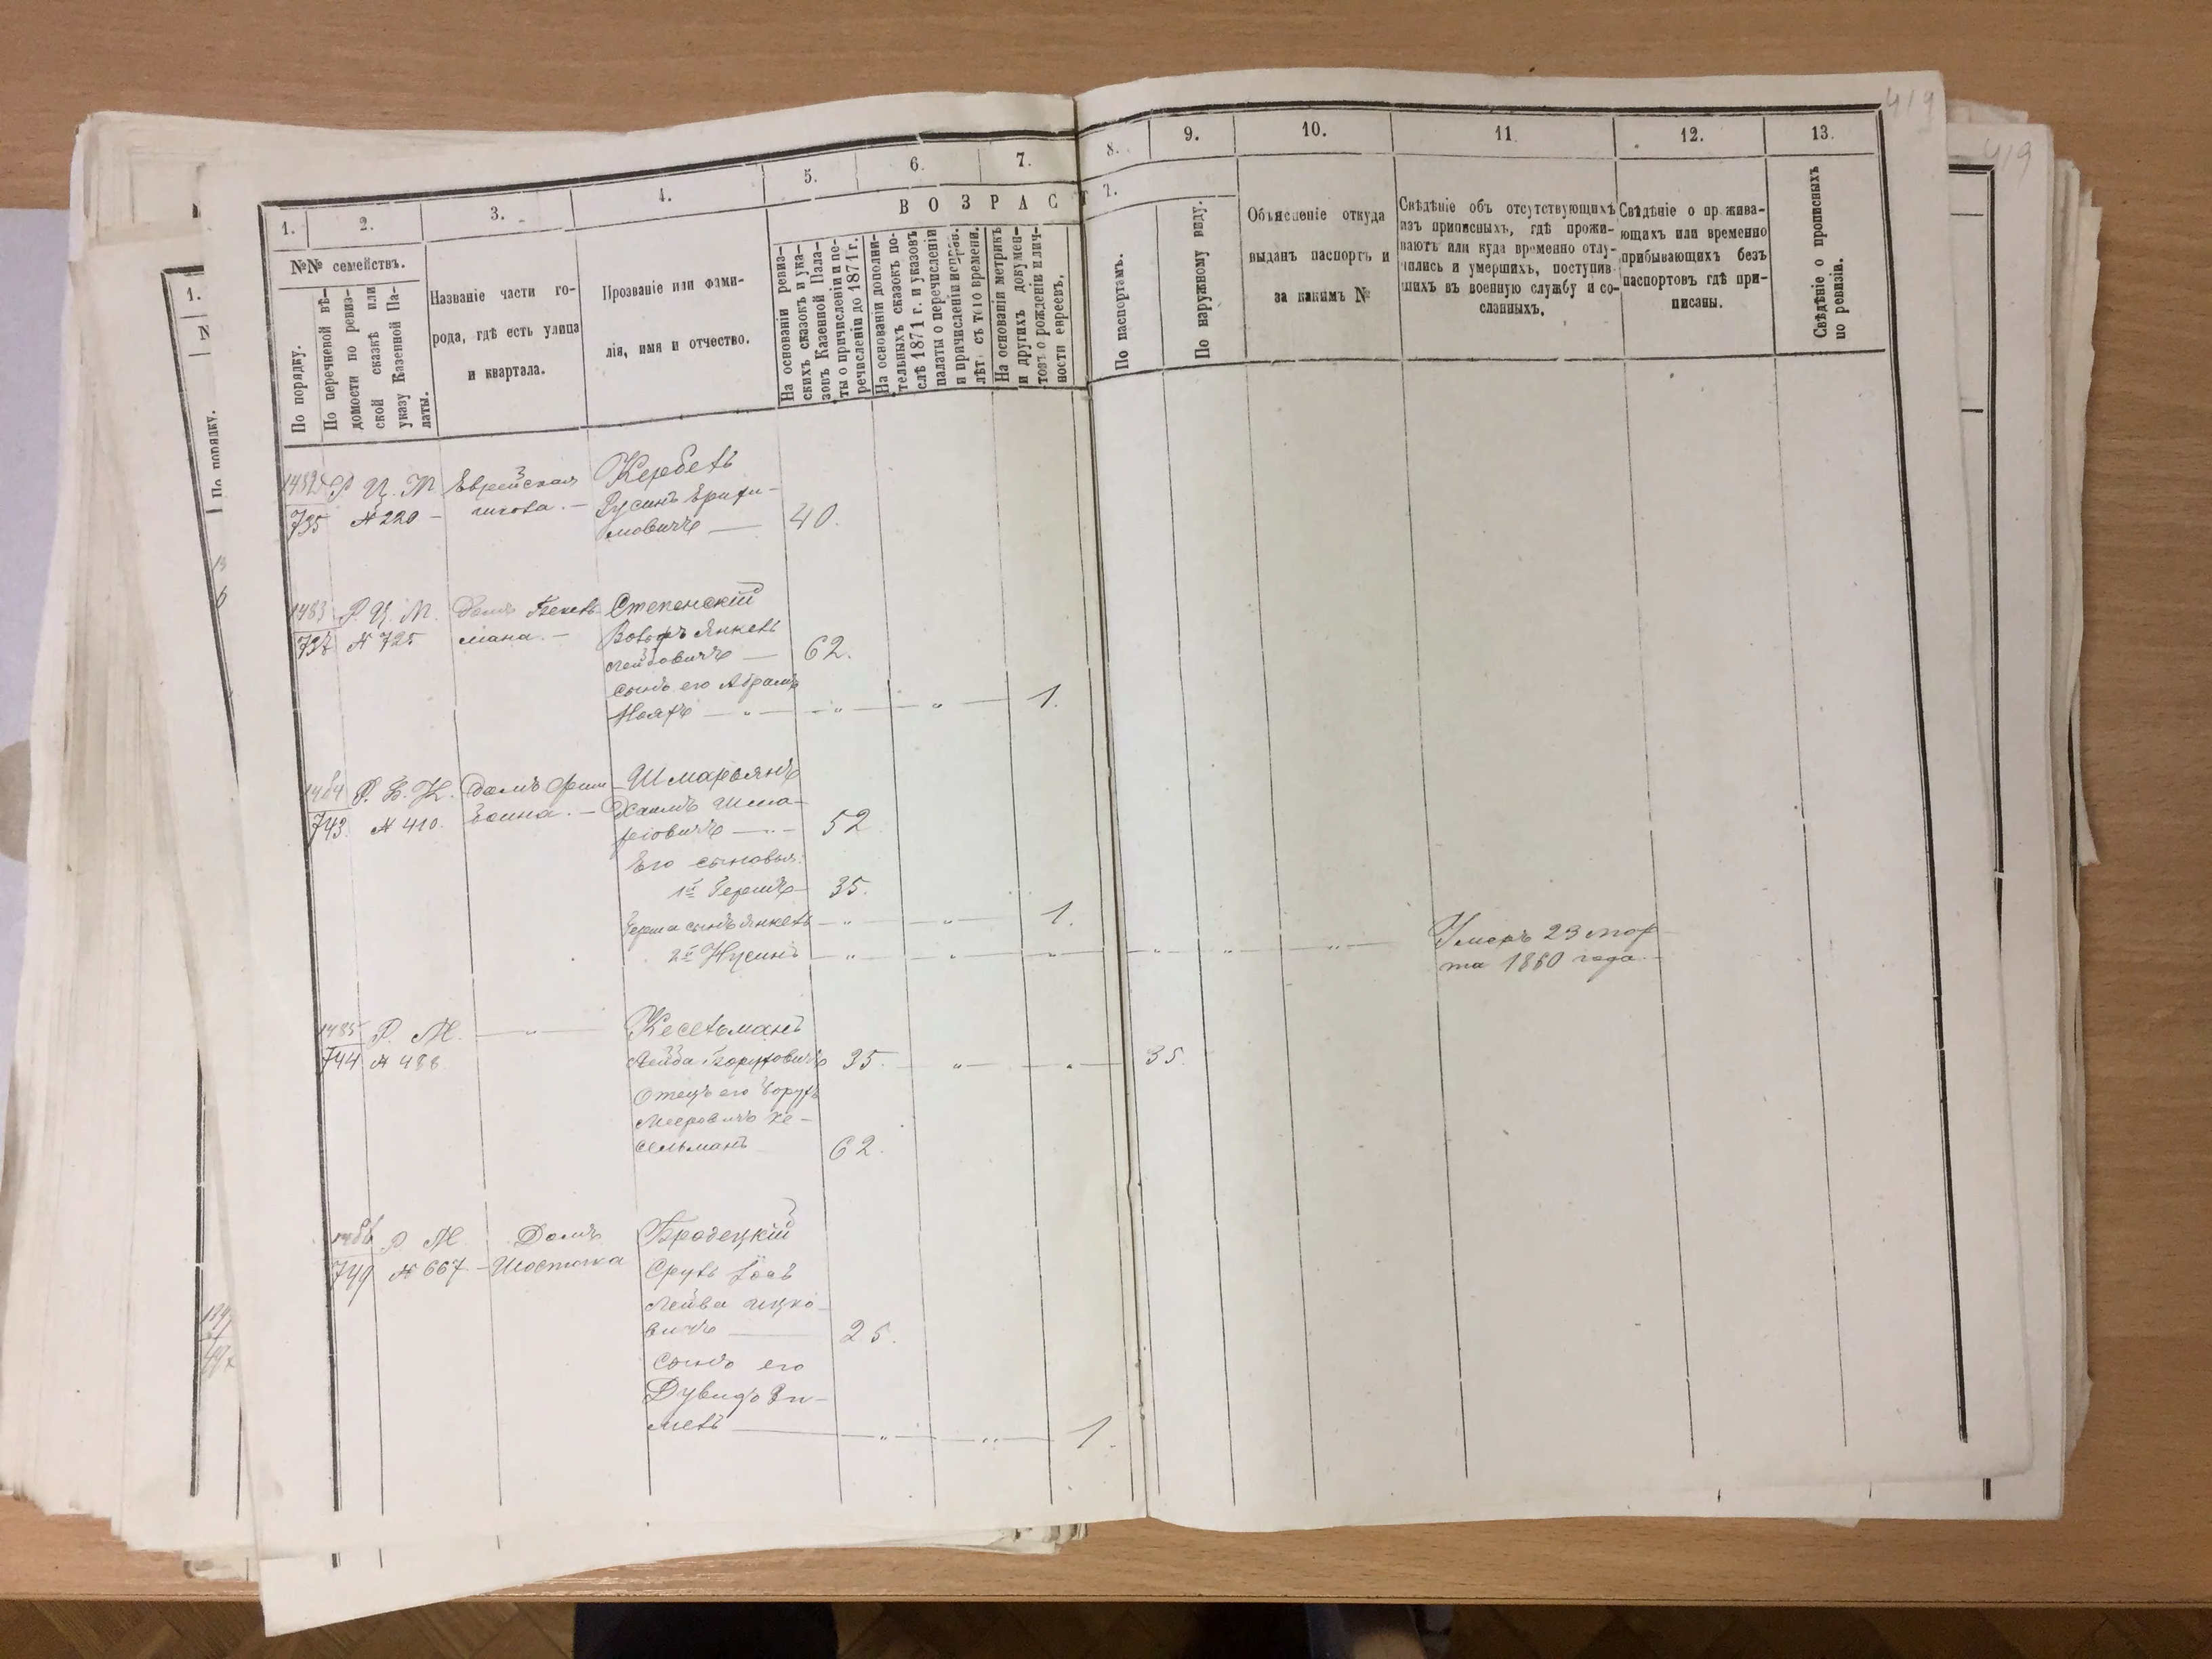 419
419
1.
2.
3.
4.
5.
6.
7.
8.
9.
10.
11.
12.
13.
№№ семействъ.
ВОЗРАСТ
По порядку.
По перечневой вѣ-
домости по ревиз-
ской сказкѣ или
указу Казенной Па-
латы.
Названіе части го-
рода, гдѣ есть улица
и квартала.
Прозваніе или фами-
лія, имя и отчество.
На основаніи ревиз-
скихъ сказокъ и ука-
зовъ Казенной Пала-
ты о причисленіи и пе-
речисленіи до 1871 г.
На основаніи дополни-
тельныхъ сказокъ по-
слѣ 1871 г. и указовъ
палаты о перечисленіи
и причисленіи исправ.
лѣтъ съ того времени.
На основаніи метрикъ
и другихъ докумен-
товъ о рожденіи и лич-
ности евреевъ.
По паспортамъ.
По наружному виду.
Объясненіе откуда
выданъ паспортъ и
за какимъ №
Свѣдѣніе объ отсутствующихъ
изъ приписныхъ, гдѣ прожи-
ваютъ или куда временно отлу-
чились и умершихъ, поступив-
шихъ въ военную службу и со-
сланныхъ.
Свѣдѣніе о прожива-
ющахъ или временно
прибывающихъ безъ
паспортовъ гдѣ при-
писаны.
Свѣдѣніе о прописныхъ
по ревизіи.
1.
N
По порядку.
1482 Р. Ц. М. Еврейская Кербель
735 № 220 - школа. - Русинъ
мовичъ — 40.
1483 Р. Ц. М. Домъ Степенскій
№ 725 мана. - Вольфъ Янкель
Лейбовичъ — 62.
сынъ его Абрамъ
— " — " — " — 1.
1484 Р. Б. К. Домъ Шмарьянъ
743. № 410. Хаимъ Шма-
ріовичъ — 52
Его сыновья:
1й Гершъ — 35.
Герша сынъ Янкель — " — " — 1.
2й Нусинъ — " — " — " — " — " — " — Умеръ 23 мар-
та 1860 года. -
1485 Р. М. — " — Кесельманъ
744 № 488 Лейба Борухович 35. — " — " — 35.
Отецъ его Борухъ
Мееровичъ Ке-
сельманъ 62.
1486 Р. М. Домъ Бродецкій
749 № 667 - Шостака Сруль Іось
Лейва Ицко-
вичъ — 25.
Сынъ его
Дувидъ Зи-
мель — " — " — 1.